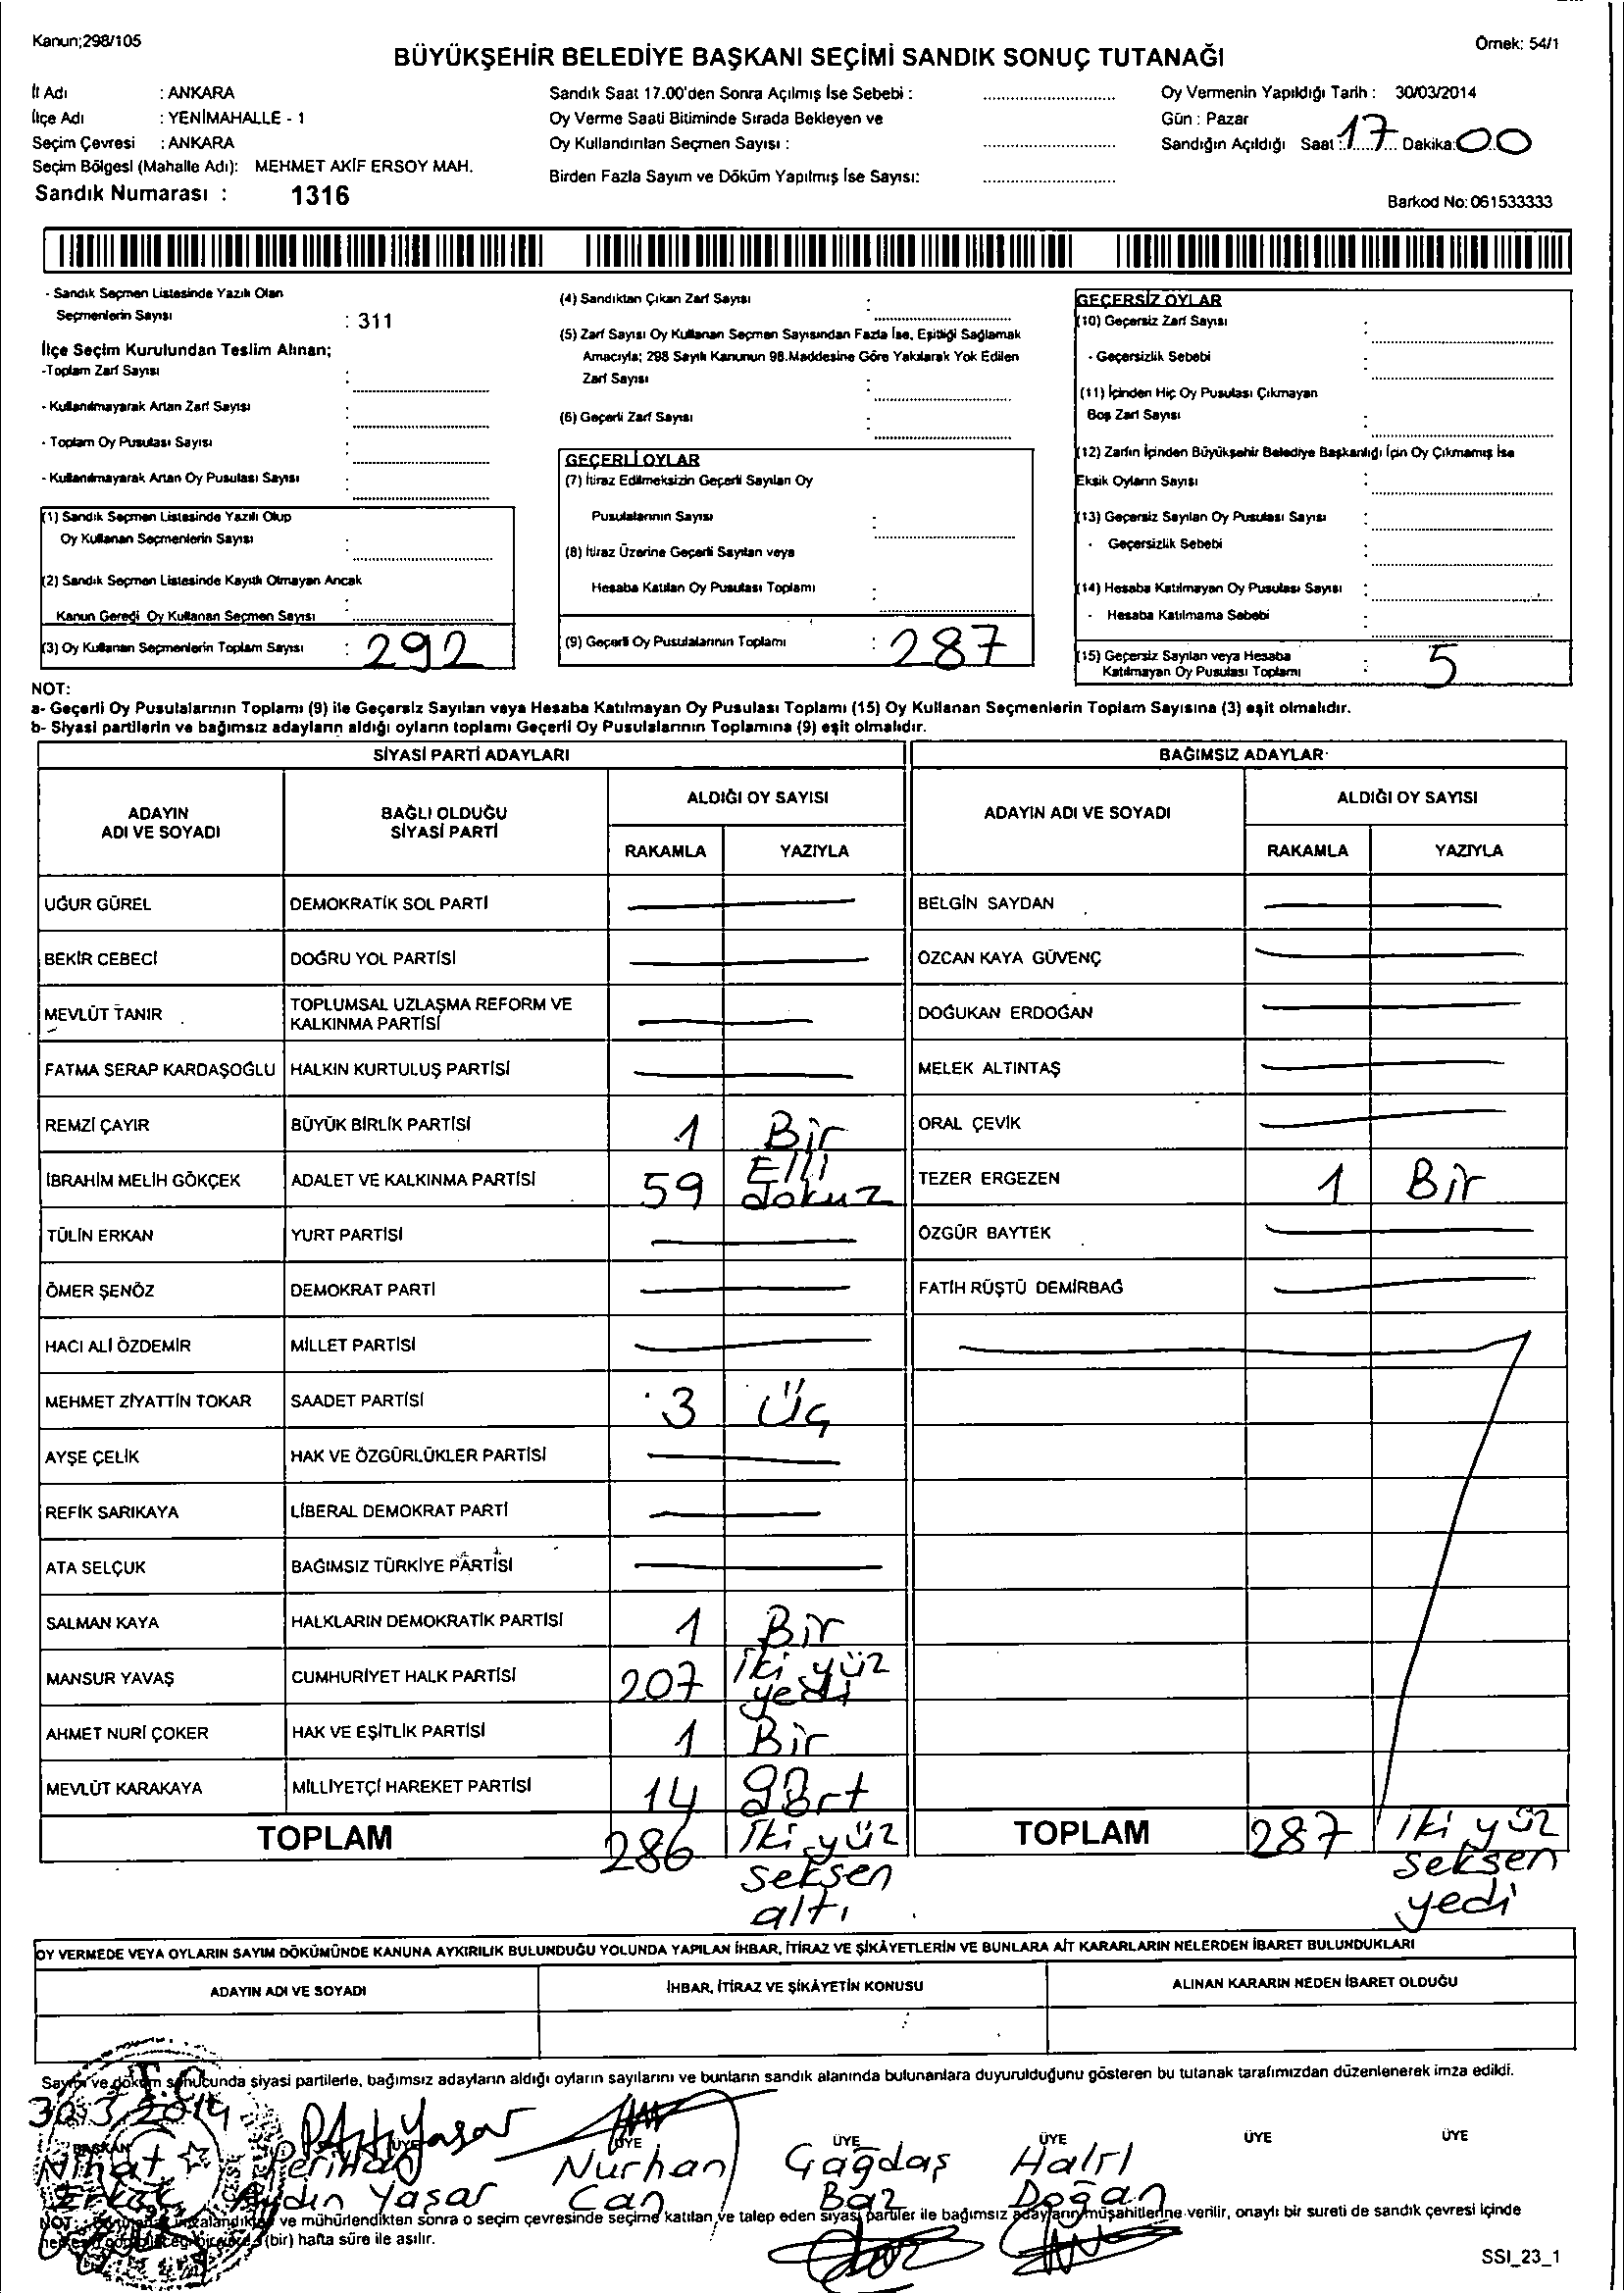 Kanun;298/105
Örnek: 54/1
BÜYÜKŞEHİR BELEDİYE BAŞKANI SEÇİMİ SANDIK SONUÇ TUTANAĞI
İl Adı : ANKARA
İlçe Adı : YENİMAHALLE - 1
Seçim Çevresi : ANKARA
Seçim Bölgesi (Mahalle Adı): MEHMET AKİF ERSOY MAH.
Sandık Numarası : 1316
Sandık Saat 17.00'den Sonra Açılmış İse Sebebi :
Oy Verme Saati Bitiminde Sırada Bekleyen ve
Oy Kullandırılan Seçmen Sayısı :
Birden Fazla Sayım ve Döküm Yapılmış İse Sayısı:
Oy Vermenin Yapıldığı Tarih : 30/03/2014
Gün : Pazar
Sandığın Açıldığı Saat : 17 Dakika: 00
Barkod No: 061533333
- Sandık Seçmen Listesinde Yazılı Olan
Seçmenlerin Sayısı : 311
İlçe Seçim Kurulundan Teslim Alınan;
-Toplam Zarf Sayısı :
- Kullanılmayarak Artan Zarf Sayısı :
- Toplam Oy Pusulası Sayısı :
- Kullanılmayarak Artan Oy Pusulası Sayısı :
(1) Sandık Seçmen Listesinde Yazılı Olup
Oy Kullanan Seçmenlerin Sayısı :
(2) Sandık Seçmen Listesinde Kayıtlı Olmayan Ancak
Kanun Gereği Oy Kullanan Seçmen Sayısı :
(3) Oy Kullanan Seçmenlerin Toplam Sayısı : 292
(4) Sandıktan Çıkan Zarf Sayısı :
(5) Zarf Sayısı Oy Kullanan Seçmen Sayısından Fazla İse, Eşitliği Sağlamak
Amacıyla; 298 Sayılı Kanunun 98.Maddesine Göre Yakılarak Yok Edilen
Zarf Sayısı :
(6) Geçerli Zarf Sayısı :
GEÇERLİ OYLAR
(7) İtiraz Edilmeksizin Geçerli Sayılan Oy
Pusulalarının Sayısı :
(8) İtiraz Üzerine Geçerli Sayılan veya
Hesaba Katılan Oy Pusulası Toplamı :
(9) Geçerli Oy Pusulalarının Toplamı : 287
GEÇERSİZ OYLAR
(10) Geçersiz Zarf Sayısı :
- Geçersizlik Sebebi :
(11) İçinden Hiç Oy Pusulası Çıkmayan
Boş Zarf Sayısı :
(12) Zarfın İçinden Büyükşehir Belediye Başkanlığı İçin Oy Çıkmamış İse
Eksik Oyların Sayısı :
(13) Geçersiz Sayılan Oy Pusulası Sayısı :
- Geçersizlik Sebebi :
(14) Hesaba Katılmayan Oy Pusulası Sayısı :
- Hesaba Katılmama Sebebi :
(15) Geçersiz Sayılan veya Hesaba
Katılmayan Oy Pusulası Toplamı : 5
NOT:
a- Geçerli Oy Pusulalarının Toplamı (9) ile Geçersiz Sayılan veya Hesaba Katılmayan Oy Pusulası Toplamı (15) Oy Kullanan Seçmenlerin Toplam Sayısına (3) eşit olmalıdır.
b- Siyasi partilerin ve bağımsız adayların aldığı oyların toplamı Geçerli Oy Pusulalarının Toplamına (9) eşit olmalıdır.
SİYASİ PARTİ ADAYLARI
BAĞIMSIZ ADAYLAR
ADAYIN
ADI VE SOYADI
BAĞLI OLDUĞU
SİYASİ PARTİ
ALDIĞI OY SAYISI
RAKAMLA YAZIYLA
ADAYIN ADI VE SOYADI
ALDIĞI OY SAYISI
RAKAMLA YAZIYLA
UĞUR GÜREL DEMOKRATİK SOL PARTİ — BELGİN SAYDAN —
BEKİR CEBECİ DOĞRU YOL PARTİSİ — ÖZCAN KAYA GÜVENÇ —
MEVLÜT TANIR TOPLUMSAL UZLAŞMA REFORM VE
KALKINMA PARTİSİ — DOĞUKAN ERDOĞAN —
FATMA SERAP KARDAŞOĞLU HALKIN KURTULUŞ PARTİSİ — MELEK ALTINTAŞ —
REMZİ ÇAYIR BÜYÜK BİRLİK PARTİSİ 1 Bir ORAL ÇEVİK —
İBRAHİM MELİH GÖKÇEK ADALET VE KALKINMA PARTİSİ 59 Elli dokuz TEZER ERGEZEN 1 Bir
TÜLİN ERKAN YURT PARTİSİ — ÖZGÜR BAYTEK —
ÖMER ŞENÖZ DEMOKRAT PARTİ — FATİH RÜŞTÜ DEMİRBAĞ —
HACI ALİ ÖZDEMİR MİLLET PARTİSİ —
MEHMET ZİYATTİN TOKAR SAADET PARTİSİ 3 Üç
AYŞE ÇELİK HAK VE ÖZGÜRLÜKLER PARTİSİ —
REFİK SARIKAYA LİBERAL DEMOKRAT PARTİ —
ATA SELÇUK BAĞIMSIZ TÜRKİYE PARTİSİ —
SALMAN KAYA HALKLARIN DEMOKRATİK PARTİSİ 1 Bir
MANSUR YAVAŞ CUMHURİYET HALK PARTİSİ 207 iki yüz yedi
AHMET NURİ ÇOKER HAK VE EŞİTLİK PARTİSİ 1 Bir
MEVLÜT KARAKAYA MİLLİYETÇİ HAREKET PARTİSİ 14 dört
TOPLAM 286 iki yüz seksen altı TOPLAM 287 iki yüz seksen yedi
OY VERMEDE VEYA OYLARIN SAYIM DÖKÜMÜNDE KANUNA AYKIRILIK BULUNDUĞU YOLUNDA YAPILAN İHBAR, İTİRAZ VE ŞİKÂYETLERİN VE BUNLARA AİT KARARLARIN NELERDEN İBARET BULUNDUKLARI
ADAYIN ADI VE SOYADI İHBAR, İTİRAZ VE ŞİKÂYETİN KONUSU ALINAN KARARIN NEDEN İBARET OLDUĞU
T.C.
Sayım ve döküm sonucunda siyasi partilerle, bağımsız adayların aldığı oyların sayılarını ve bunların sandık alanında bulunanlara duyurulduğunu gösteren bu tutanak tarafımızdan düzenlenerek imza edildi.
30.3.2014
BAŞKAN ÜYE ÜYE ÜYE ÜYE ÜYE ÜYE
Nihat Perihan Nurhan Çağdaş Halil
Aydın Yaşar Can Baz Doğan
NOT: ve mühürlendikten sonra o seçim çevresinde seçime katılan ve talep eden siyasi partiler ile bağımsız adayların müşahitlerine verilir, onaylı bir sureti de sandık çevresi içinde
(bir) hafta süre ile asılır.
SSI_23_1